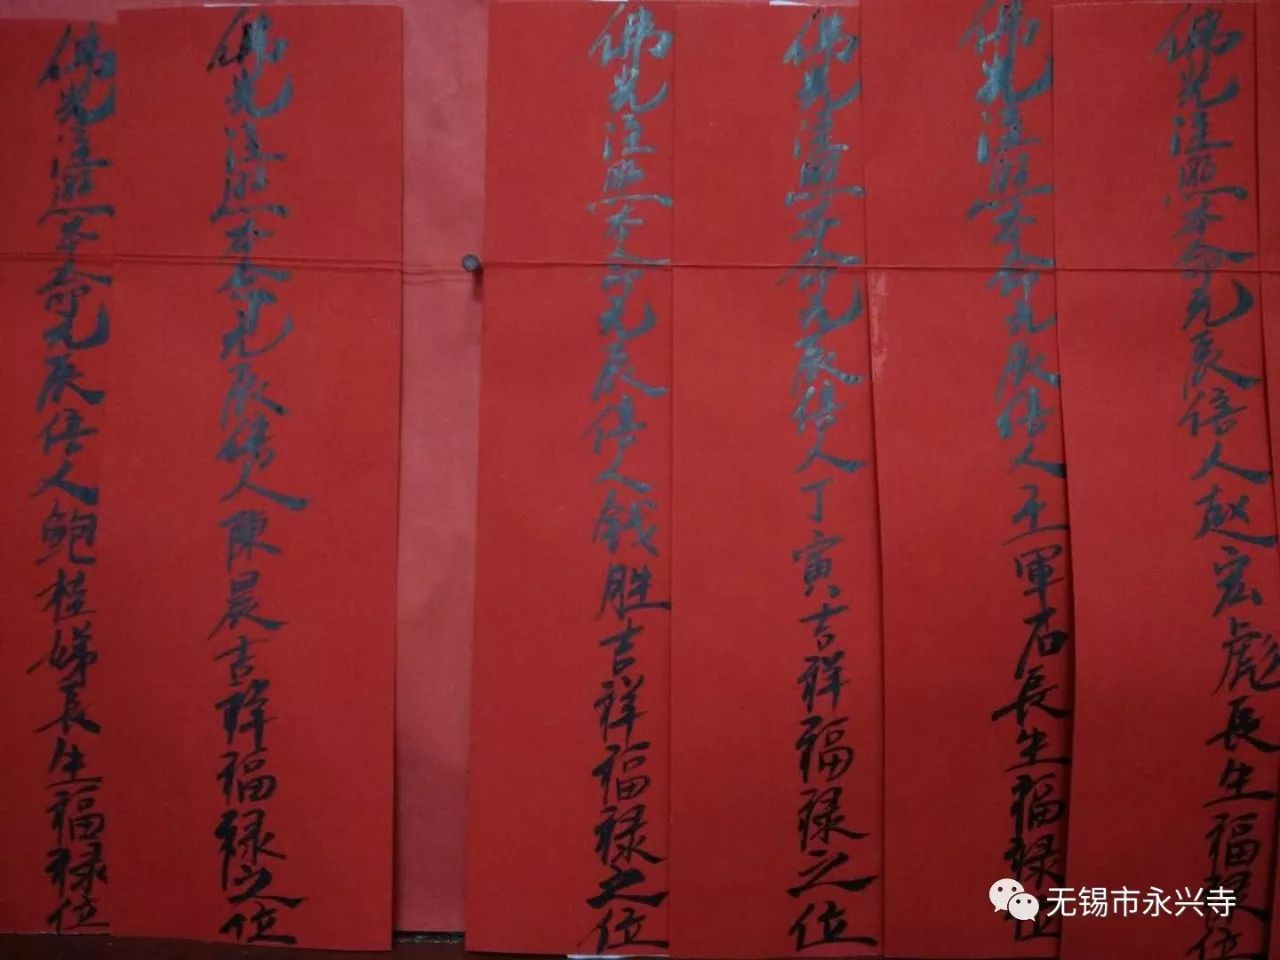 佛光注照本命元辰信人赵宏彪長生福禄位
佛光注照本命元辰信人王軍石長生福禄位
佛光注照本命元辰信人丁寅吉祥福禄之位
佛光注照本命元辰信人钱胜吉祥福禄之位
佛光注照本命元辰信人陳晨吉祥福禄之位
佛光注照本命元辰信人鲍桂娣長生福禄位
无锡市永兴寺